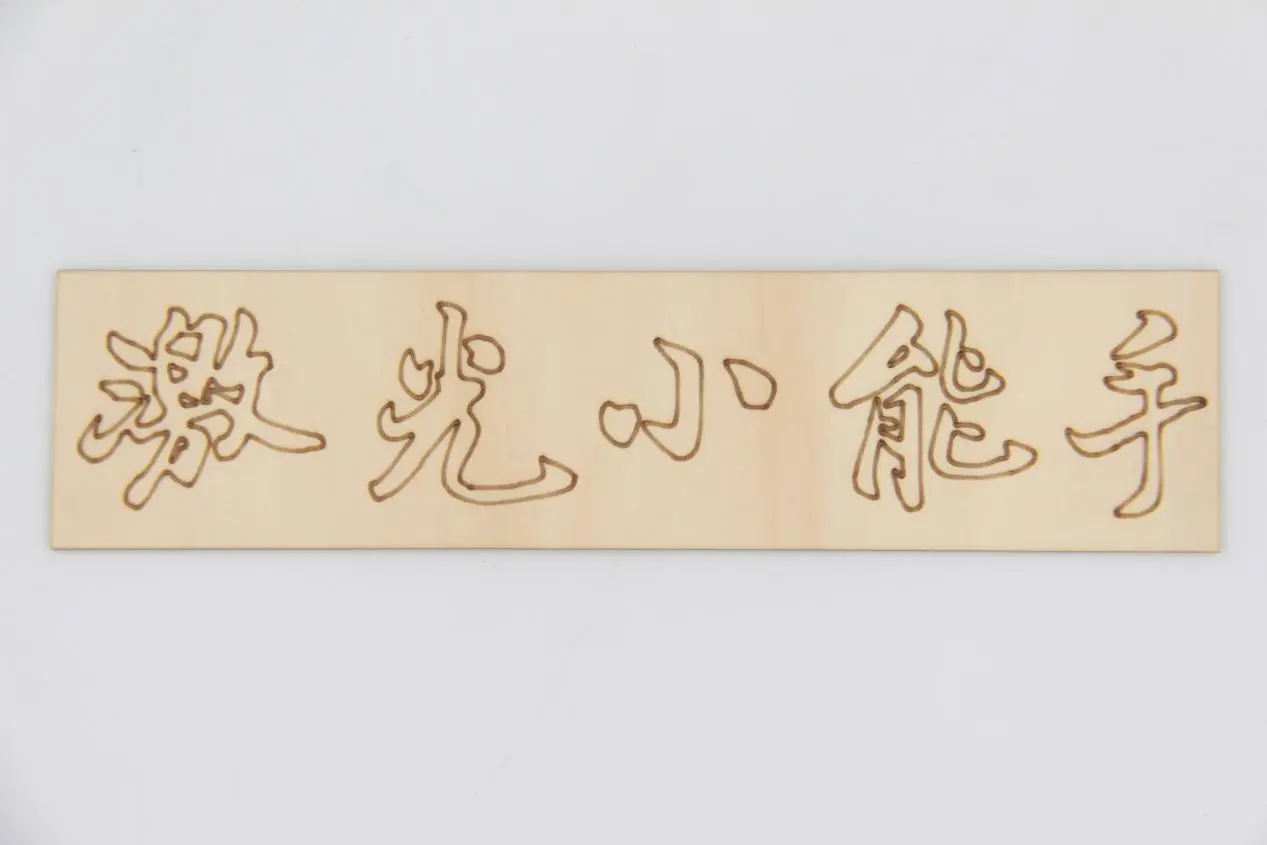 激光小能手